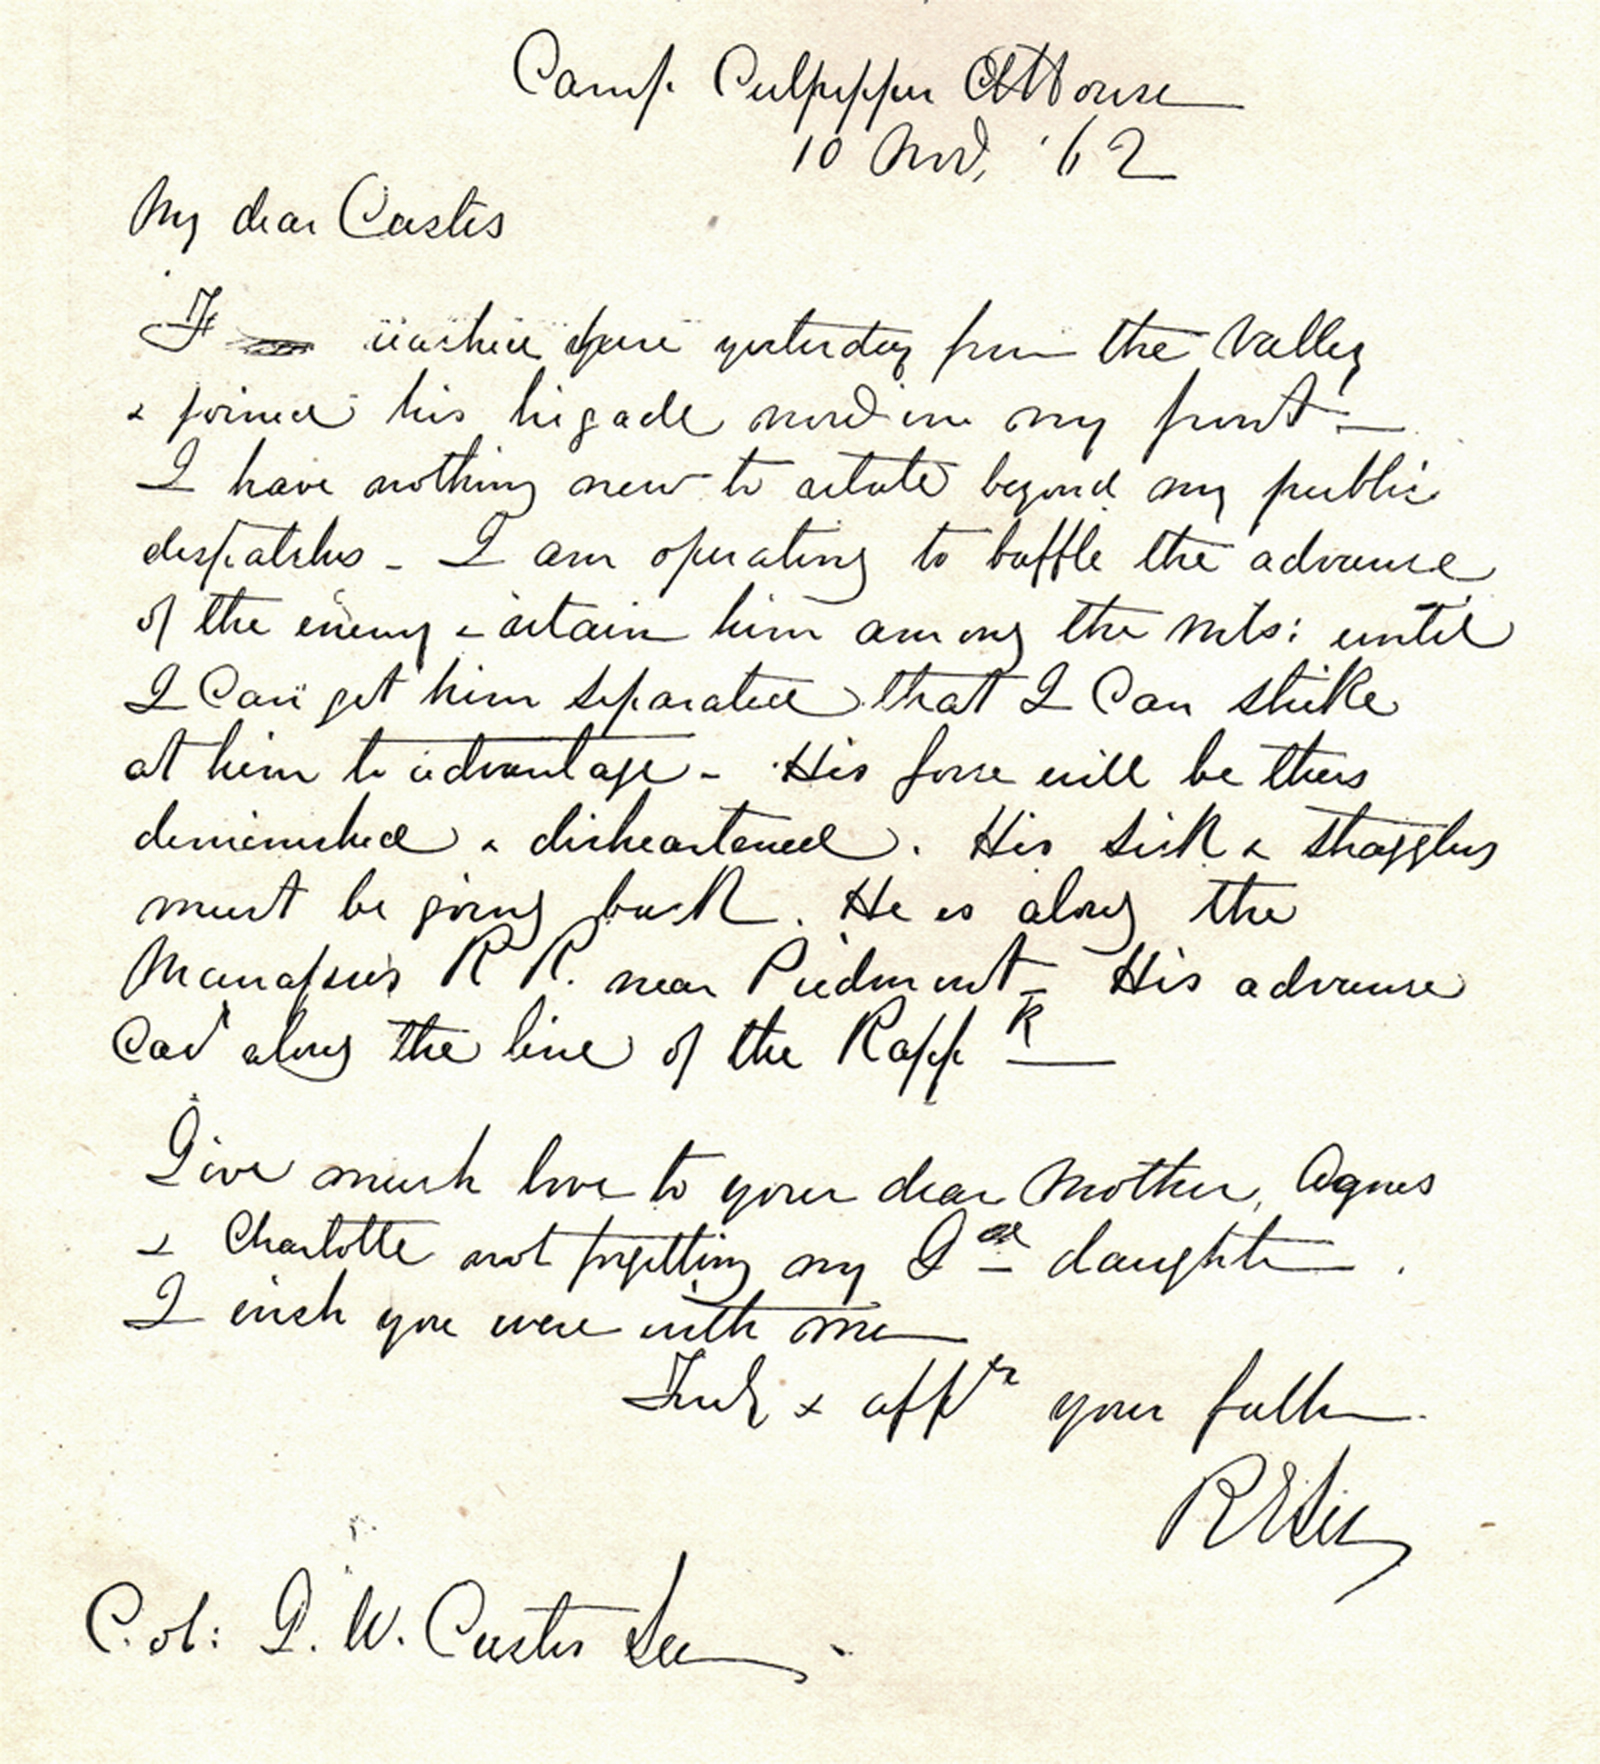 Camp Culpepper CtHouse
10 Nov, '62
My dear Custis
F reached here yesterday from the Valley
& joined his brigade now in my front—
I have nothing new to state beyond my public
despatches - I am operating to baffle the advance
of the enemy & retain him among the mts: until
I can get him separated that I can strike
at him to advantage - His force will be thus
diminished & disheartened. His sick & stragglers
must be going back. He is along the
Manassas R R. near Piedmont - His advance
Cav along the line of the Rappk
Give much love to your dear Mother, Agnes
& Charlotte not forgetting my Gd daughter.
I wish you were with me
Truly & affty your father
RELee
Col: G. W. Custis Lee